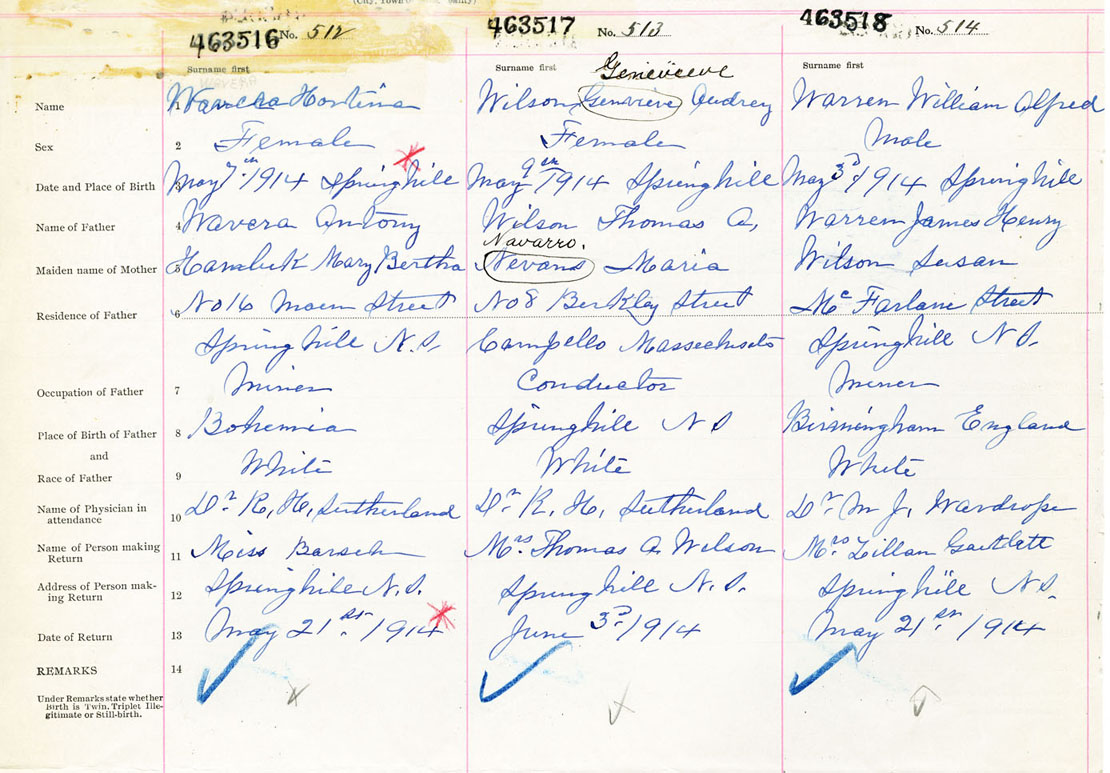 (City, Town or County)
463516 No. 512 463517 No. 513 463518 No. 514
Surname first Surname first Surname first
Genevieve
Name 1 Wavera Hortina Wilson Genevive Audrey Warren William Alfred
Sex 2 Female Female Male
Date and Place of Birth 3 May 7th 1914 Springhill May 9th 1914 Springhill May 3d 1914 Springhill
Name of Father 4 Wavera Antony Wilson Thomas A. Warren James Henry
Navarro.
Maiden name of Mother 5 Mary Bertha Nevans Maria Wilson Susan
Residence of Father 6 No 16 Main Street No 8 Berkley Street Mc Farlane Street
Springhill N.S. Campello Massechisets Springhill N S.
Occupation of Father 7 Miner Conductor Miner
Place of Birth of Father 8 Bohemia Springhill N S Birmingham England
and
Race of Father 9 White White White
Name of Physician in
attendance 10 Dr R. H. Sutherland Dr R. H. Sutherland Dr M J. Wardrope
Name of Person making
Return 11 Miss Mrs Thomas A. Wilson Mrs Lillan
Address of Person mak-
ing Return 12 Springhill N.S. Springhill N.S. Springhill N S.
Date of Return 13 May 21st 1914 June 3d 1914 May 21st 1914
REMARKS 14
Under Remarks state whether
Birth is Twin, Triplet Ille-
gitimate or Still-birth.